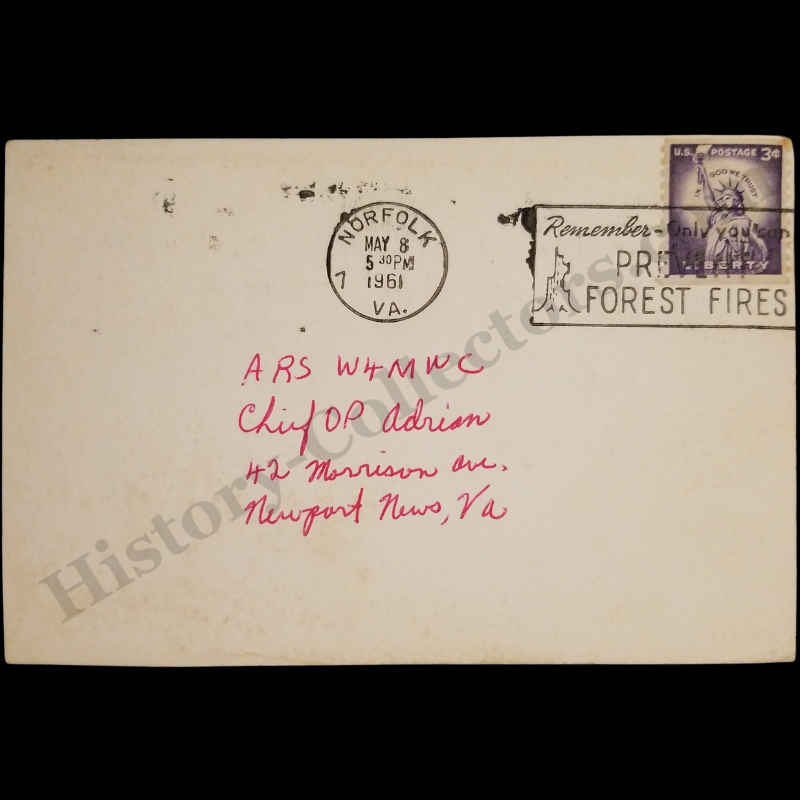 U.S. POSTAGE 3¢
IN GOD WE TRUST
LIBERTY
NORFOLK
MAY 8
5 30 PM
1961
7
VA.
Remember - Only you can
PREVENT
FOREST FIRES
ARS W4MWC
Chief OP Adrian
42 Morrison Ave.
Newport News, Va
History-Collectors.